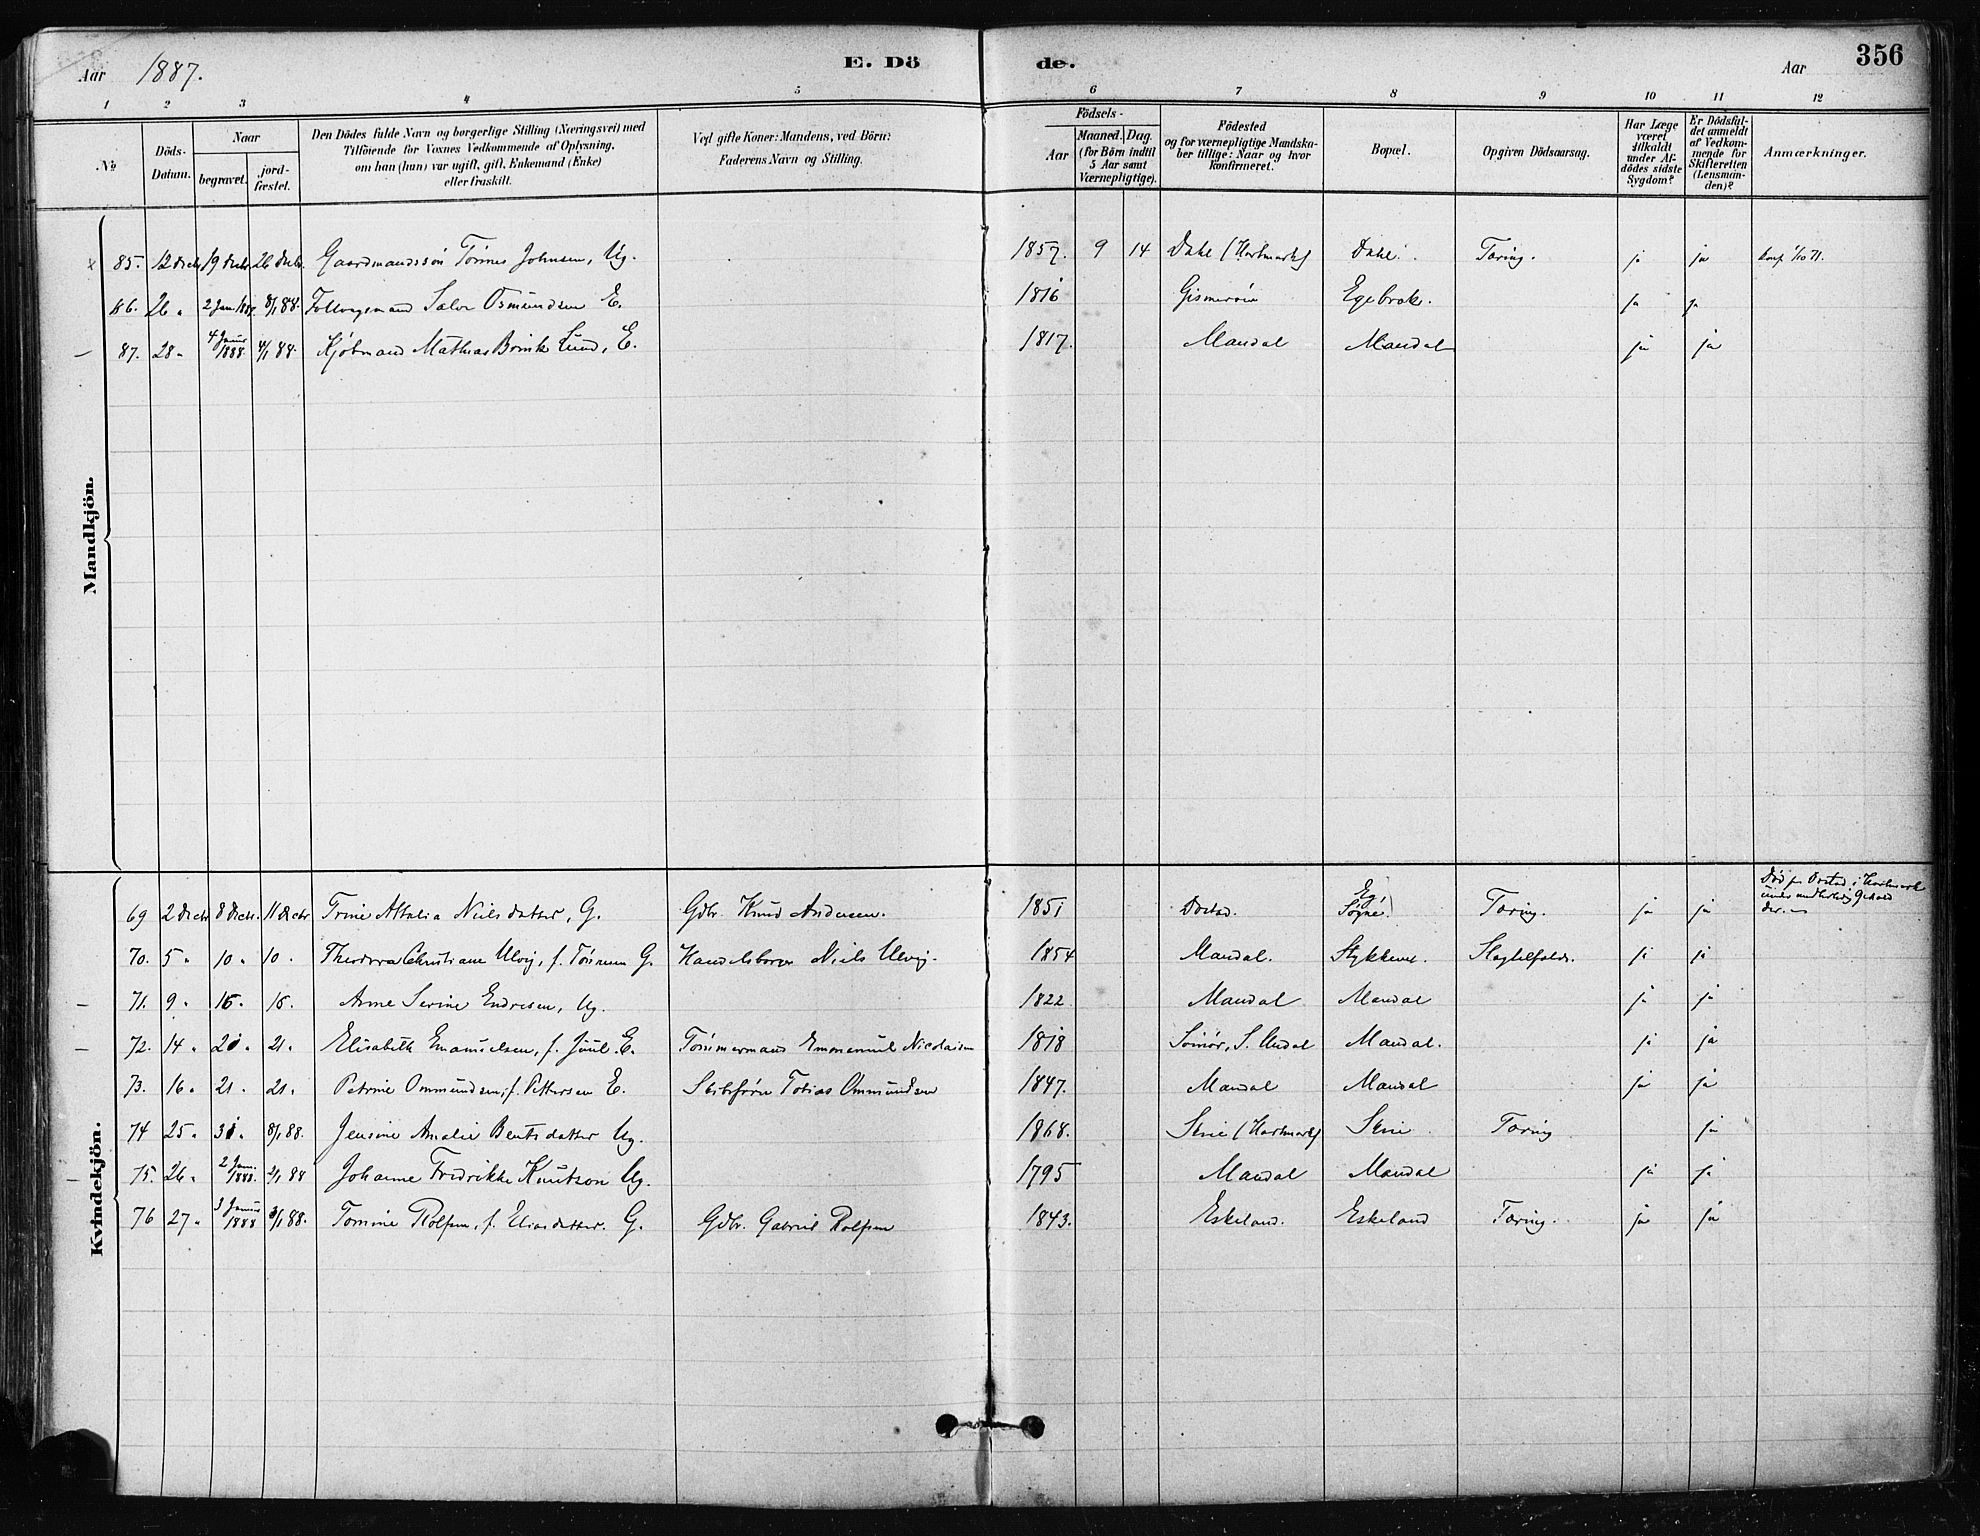 Aar 1887. E. Dö de. Aar 356
1 2 3 4 5 6 7 8 9 10 11 12
№
Döds-Datum.
Naar
begravet.
jordfæstet.
Den Dödes fulde Navn og borgerlige Stilling (Næringsvei) med
Tilföiende for Voxnes Vedkommende af Oplysning,
om han (hun) var ugift, gift, Enkemand (Enke)
eller fraskilt.
Ved gifte Koner: Mandens, ved Börn:
Faderens Navn og Stilling.
Födsels-
Aar
Maaned. Dag.
(for Börn indtil
5 Aar samt
Værnepligtige).
Födested
og for værnepligtige Mandska-
ber tillige: Naar og hvor
konfirmeret.
Bopæl.
Opgiven Dödsaarsag.
Har Læge
været
tilkaldt
under Af-
dödes sidste
Sygdom?
Er Dödsfal-
det anmeldt
af Vedkom-
mende for
Skifteretten
(Lensman-
den)?
Anmærkninger.
Mandkjön.
85. 12 Decbr. 19 Decbr. 26 Decbr. Gaardmandssön Tönnes Johnsen, Ug. 1857. 9 14 Dahl (Hartmark) Dahl. Tæring. ja ja Konf. 1/10 71.
86. 26 " 2 Jan. 1888 8/1 88. Salve Osmundsen E. 1816 Gismeröen Egebrok. ja ja
87. 28 " 4 Januar 1888. 4/1 88. Kjöbmand Mathias Brinck Lund, E. 1817. Mandal Mandal ja ja
Kvindekjön.
69 2 Decbr 8 Decbr. 11 Decbr Trine Attalia Nielsdatter, G. Gdbr. Knud Andersen. 1851 Eg, Søgne. Tæring. ja ja Død paa i Hartmark
70. 5 " 10 " 10 " Theodora Christiane Ulvig, f. Tönnesen G. Handelsborger Niels Ulvig. 1854 Mandal. Stykkene. ja ja
71. 9 " 15 " 15. Anne Serine Endresen, Ug. 1822 Mandal Mandal ja ja
72. 14 " 21 " 21 " Elisabeth Emanuelsen, f. Juul. E. Tömmermand Emanuel Nicolaisen 1818 S. Undal Mandal. ja ja
73. 16 " 21 " 21 " Petrine Ommundsen, f. Pettersen E. Skibsförer Tobias Ommundsen 1847. Mandal Mandal ja ja
74 25 " 31 " 8/1 88. Jensine Amalie Bentsdatter Ug. 1868. Skrie (Hartmark) Skrie Tæring ja
75. 26 " 2 Jan. 1888. 2/1 88 Johanne Fredrikke Knutson Ug. 1795 Mandal Mandal ja ja
76 27 " 3 Januar 1888 3/1 88. Tomine Rolfsen, f. Eliasdatter. G. Gdbr. Gabriel Rolfsen 1843. Eskeland. Eskeland Tæring. ja ja